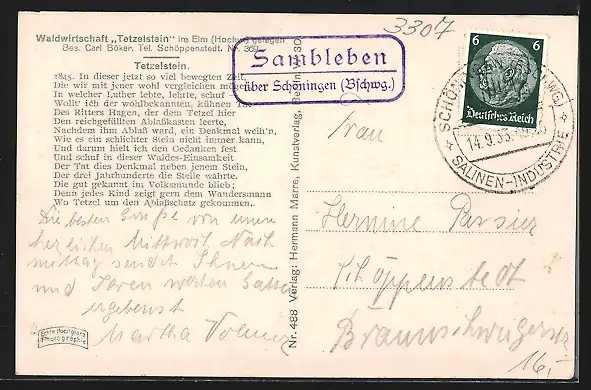 Waldwirtschaft „Tetzelstein“ im Elm (Hochw.) gelegen
Bes. Carl Böker. Tel. Schöppenstedt. Nr. 369
Tetzelstein.
1845. In dieser jetzt so viel bewegten Zeit,
Die wir mit jener wohl vergleichen mögen
In welcher Luther lebte, lehrte, schuf
Wollt' ich der wohlbekannten, kühnen Tat
Des Ritters Hagen, der dem Tetzel hier
Den reichgefüllten Ablaßkasten leerte,
Nachdem ihm Ablaß ward, ein Denkmal weih'n,
Wie es ein schlichter Stein nicht immer kann,
Und darum hielt ich den Gedanken fest
Und schuf in dieser Waldes-Einsamkeit
Der Tat dies Denkmal neben jenem Stein,
Der drei Jahrhunderte die Stelle wahrte.
Die gut gekannt im Volksmunde blieb;
Denn jedes Kind zeigt gern dem Wandersmann
Wo Tetzel um den Ablaßschatz gekommen.
Die besten Grüße von einem
herzlichen Mittwoch Nach
mittag sendet Ihnen
und Ihren werten Gatten
ergebenst
Martha
Echte Hochglanz
Photographie
Nr. 488 Verlag: Hermann Merre, Kunstverlag, Berlin 30
3307
Sambleben
über Schöningen (Bschwg.)
6 6
Deutsches Reich
14.9.38
SALINEN-INDUSTRIE
Frau
Hermine
Schöppenstedt
Braunschweigerstr
16,-